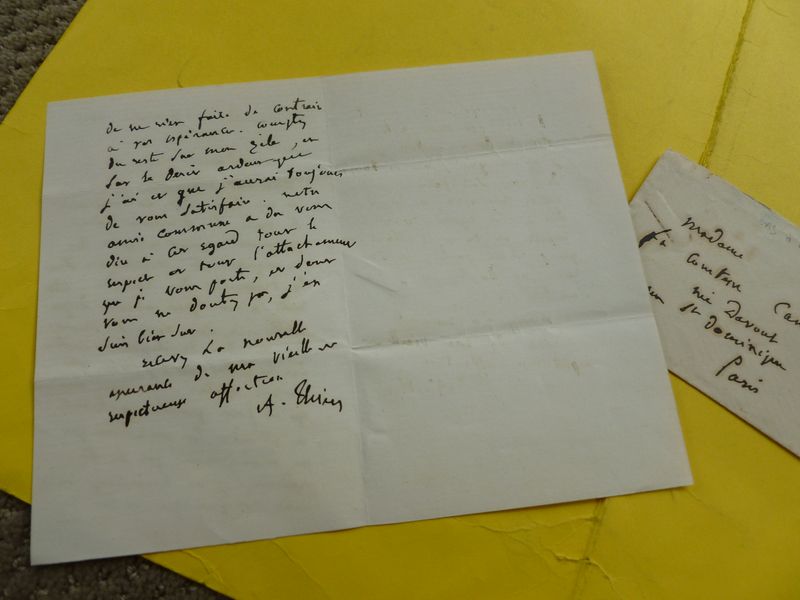 de ne rien faire de contraire
à vos espérances. comptez
du reste sur mon zèle, et
sur le désir ardent que
j'ai et que j'aurai toujours
de vous satisfaire. notre
amie commune a dû vous
dire à cet égard tout le
respect et tout l'attachement
que je vous porte, et dont
vous ne doutez pas, j'en
suis bien sûr.
la nouvelle
assurance de ma vieille et
respectueuse affection
A. Thiers
Madame
la Comtesse
née Davout
rue St Dominique
Paris